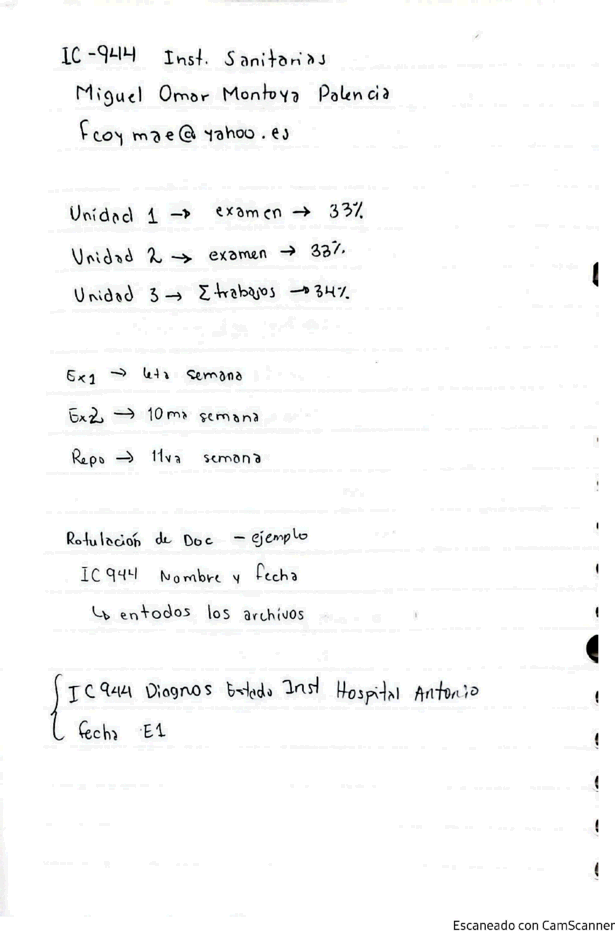 IC-944 Inst. Sanitarias
Miguel Omar Montoya Palencia
fcoymae@yahoo.es
Unidad 1 → examen → 33%
Unidad 2 → examen → 33%
Unidad 3 → Σ trabajos → 34%
Ex1 → semana
Ex2 → 10ma semana
Repo → 11va semana
Rotulación de Doc - ejemplo
IC944 Nombre y fecha
↳ en todos los archivos
IC944 Diagnos Estado Inst Hospital Antonio
fecha E1
Escaneado con CamScanner